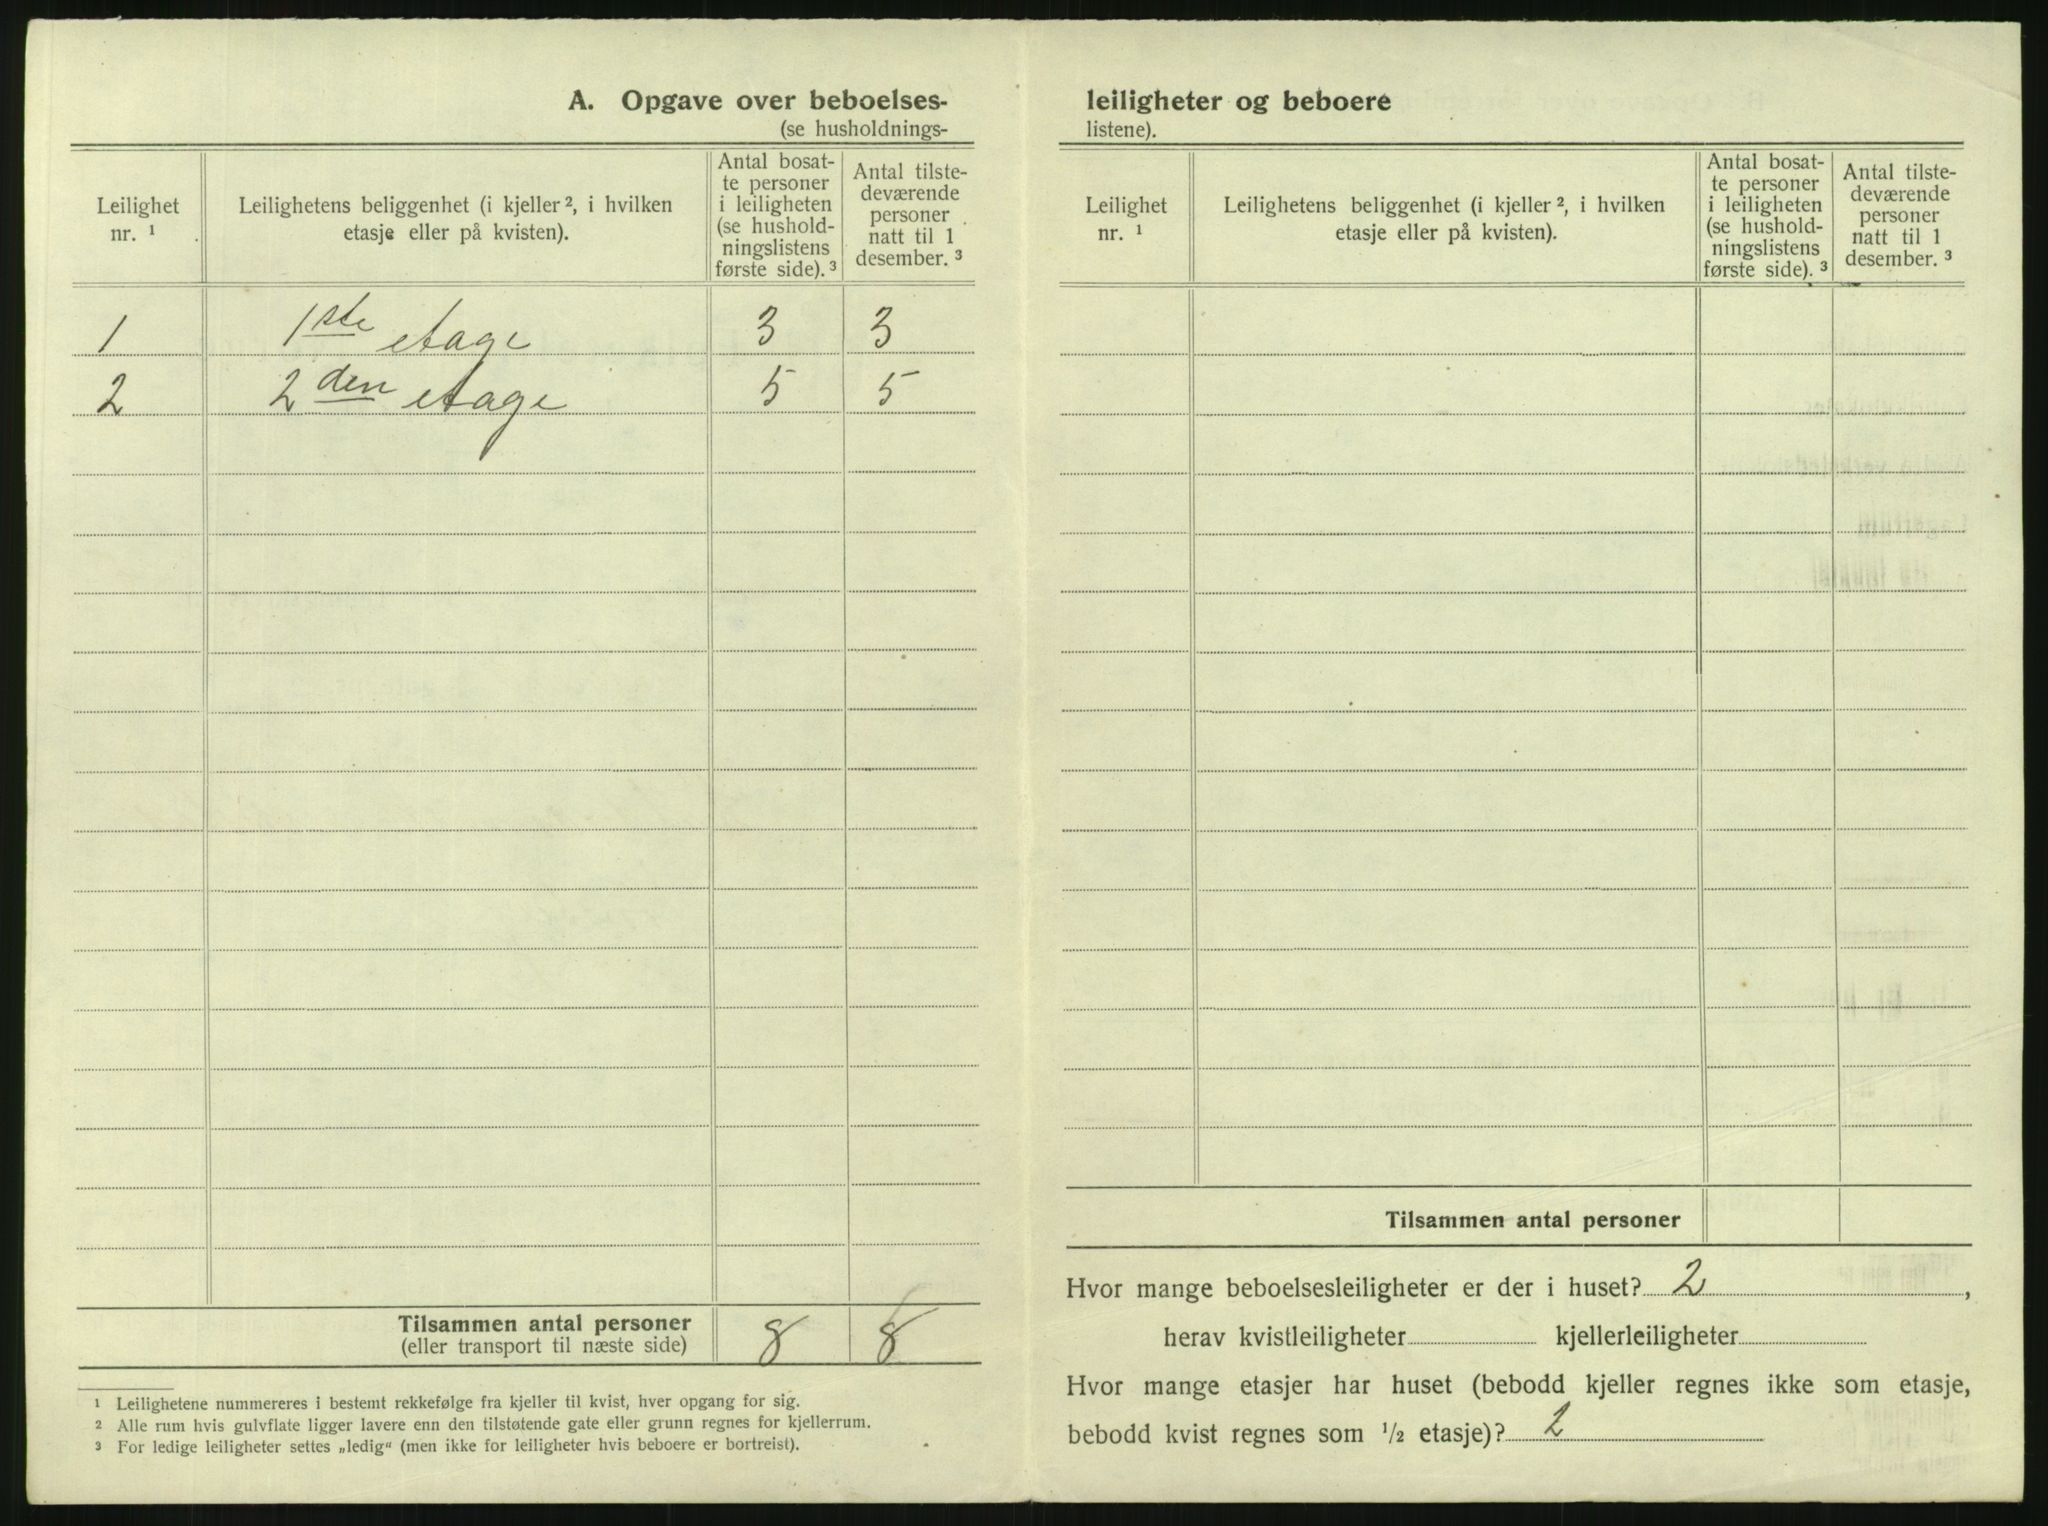 A. Opgave over beboelses-
(se husholdnings-
Leilighet nr. ¹
Leilighetens beliggenhet (i kjeller ², i hvilken
etasje eller på kvisten).
Antal bosat-
te personer
i leiligheten
(se hushold-
ningslistens
første side). ³
Antal tilste-
deværende
personer
natt til 1
desember. ³
1 1ste etage 3 3
2 2den etage 5 5
Tilsammen antal personer 8 8
(eller transport til næste side)
¹ Leilighetene nummereres i bestemt rekkefølge fra kjeller til kvist, hver opgang for sig.
² Alle rum hvis gulvflate ligger lavere enn den tilstøtende gate eller grunn regnes for kjellerrum.
³ For ledige leiligheter settes „ledig“ (men ikke for leiligheter hvis beboere er bortreist).
leiligheter og beboere
listene).
Leilighet
nr. ¹
Leilighetens beliggenhet (i kjeller ², i hvilken
etasje eller på kvisten).
Antal bosat-
te personer
i leiligheten
(se hushold-
ningslistens
første side). ³
Antal tilste-
deværende
personer
natt til 1
desember. ³
Tilsammen antal personer
Hvor mange beboelsesleiligheter er der i huset? 2,
herav kvistleiligheter kjellerleiligheter
Hvor mange etasjer har huset (bebodd kjeller regnes ikke som etasje,
bebodd kvist regnes som ½ etasje)? 2